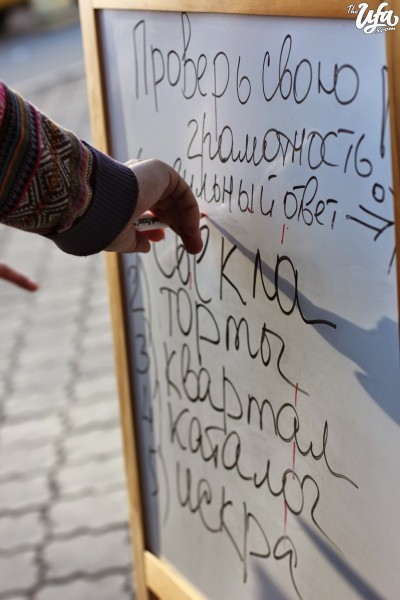 The Ufa Room
Проверь свою
грамотность
ильный ответ
свёкла
торты
квартал
каталог
искра
2)
3
4